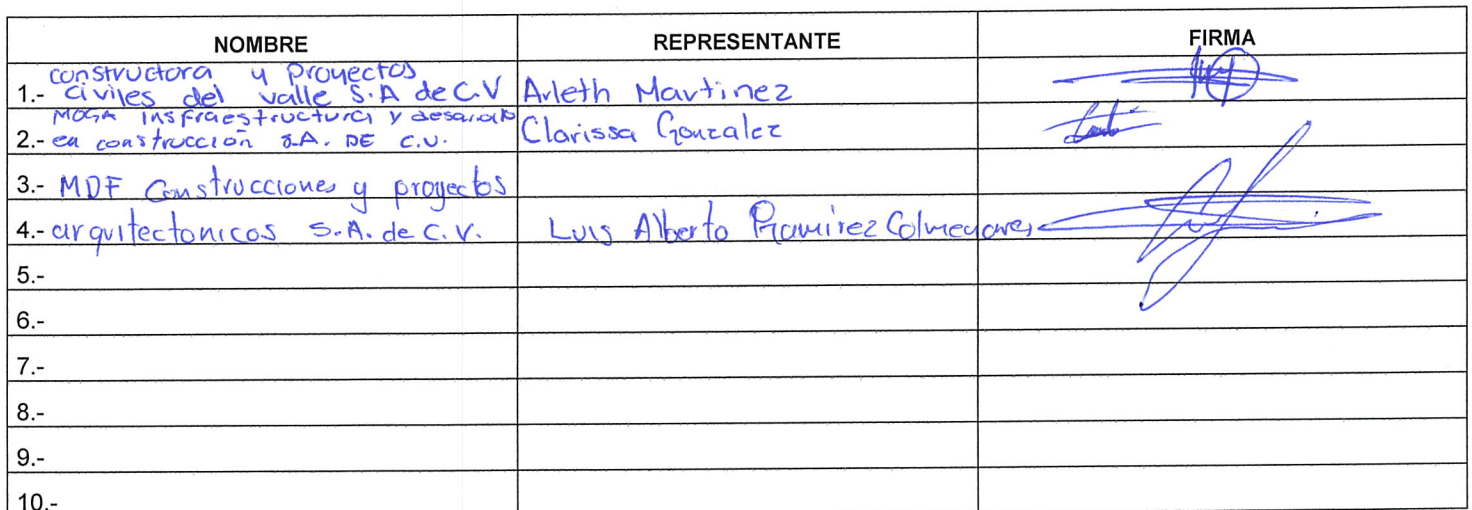 NOMBRE REPRESENTANTE FIRMA
constructora y Proyectos
1.- civiles del valle S.A de C.V Arleth Martinez
MOGA Insfraestructura y desarrollo
2.- en construcción S.A. DE C.V. Clarissa Gonzalez
3.- MDF Construcciones y proyectos
4.- arquitectonicos S.A. de C.V. Luis Alberto Ramirez Colmenares
5.-
6.-
7.-
8.-
9.-
10.-